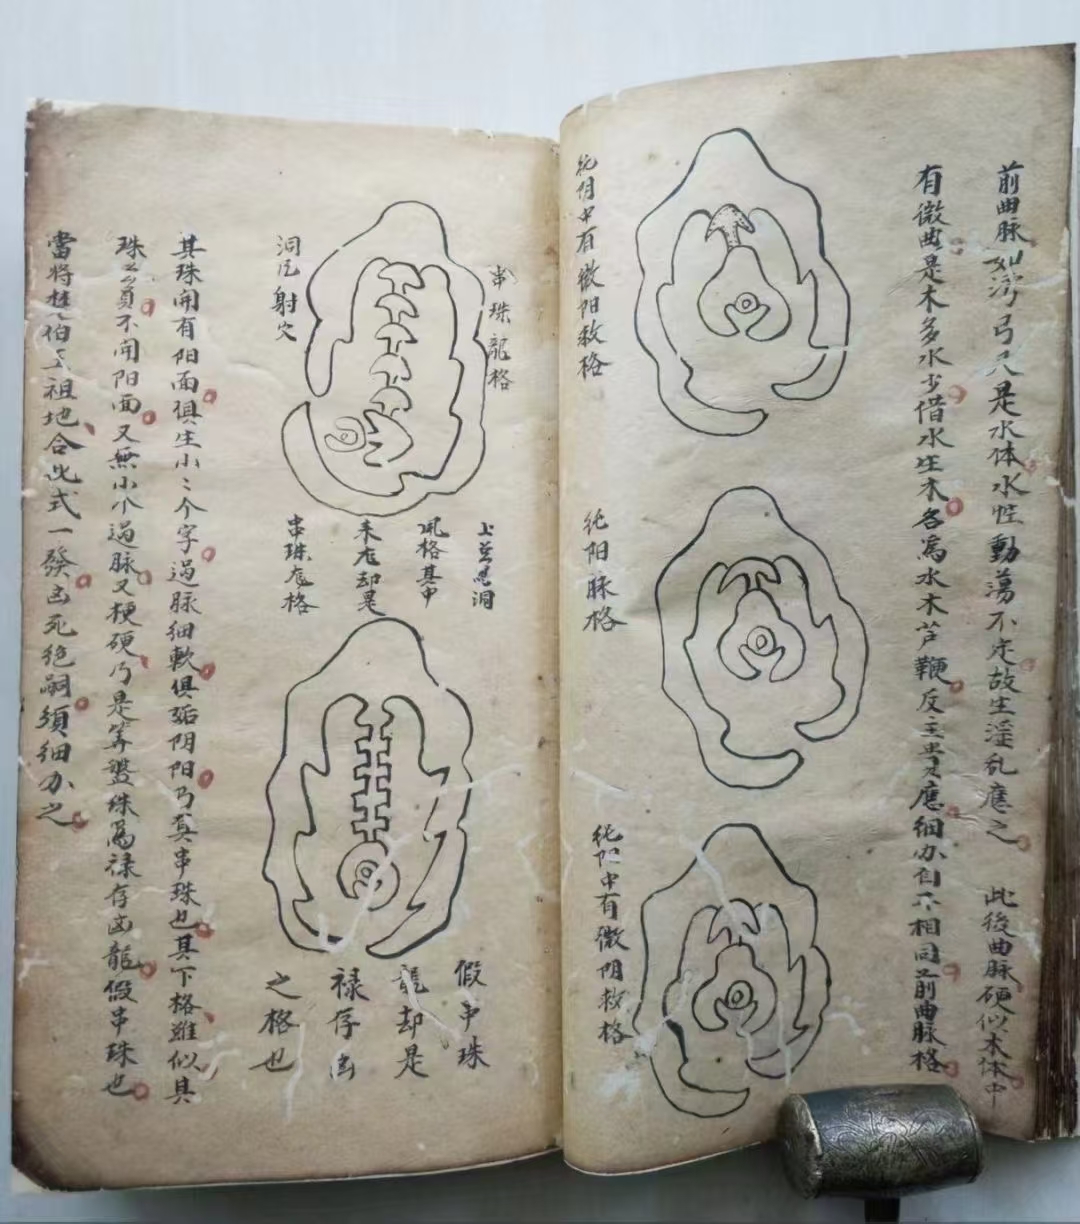 前曲脉如湾弓又是水体水性動蕩不定故生淫乱應之 此後曲脉硬似木体中
有微曲是木多水少借水生木名為水木芦鞭反主貴才應細办自不相同前曲脉格
純阴中有微阳救格
純阳脉格
純阳中有微阴救格
串珠龍格
洞 射穴
上 是洞
風格其中
来龙却是
串珠龙格
其珠開有阳面俱生小〻个字過脉细軟俱 阴阳乃真串珠也其下格雖似具
珠 員不開阳面又無小个過脉又梗硬乃是筭盤珠為禄存凶龍假串珠也
當将 伯 祖地合此式一發凶死绝嗣須细办之
假串珠
龍却是
禄存凶
之格也